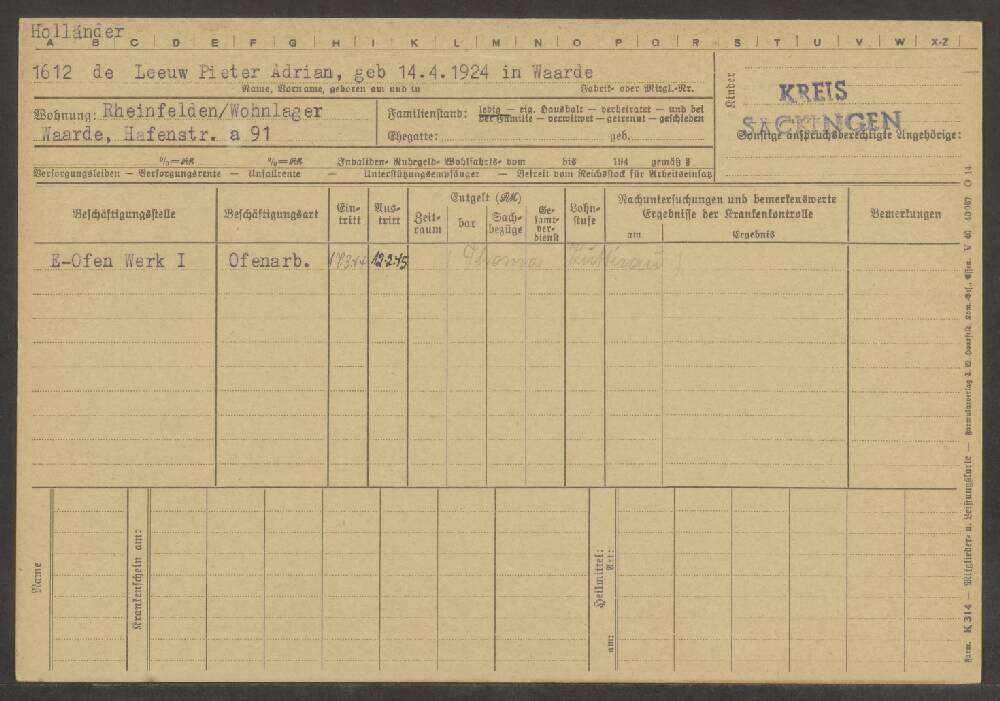 Holländer
A B C D E F G H I K L M N O P Q R S T U V W X-Z
1612 de Leeuw Pieter Adrian, geb 14.4.1924 in Waarde
Name, Vorname, geboren am und in Fabrik- oder Mitgl.-Nr.
Kinder
KREIS
SÄCKINGEN
Wohnung: Rheinfelden/Wohnlager
Waarde, Hafenstr. a 91
Familienstand: ledig — eig. Haushalt — verheiratet — und bei
der Familie — verwitwet — getrennt — geschieden
Ehegatte: geb.
Sonstige anspruchsberechtigte Angehörige:
%=RM %=RM Invaliden- Ruhegeld- Wohlfahrts- vom bis 194 gemäß §
Versorgungsleiden — Versorgungsrente — Unfallrente — Unterstützungsempfänger — Betreit vom Reichsstock für Arbeitseinsatz
Beschäftigungsstelle
Beschäftigungsart
Ein-
tritt
Aus-
tritt
Entgelt (RM)
Zeit-
raum
bar
Sach-
bezüge
Ge-
samt-
ver-
dienst
Lohn-
stufe
Nachuntersuchungen und bemerkenswerte
Ergebnisse der Krankenkontrolle
am Ergebnis
Bemerkungen
E-Ofen Werk I Ofenarb. 17.3.44 12.2.45
Name
Krankenschein am:
Heilmittel:
Art:
am:
Form. K 314 — Mitglieder- u. Leistungskarte —